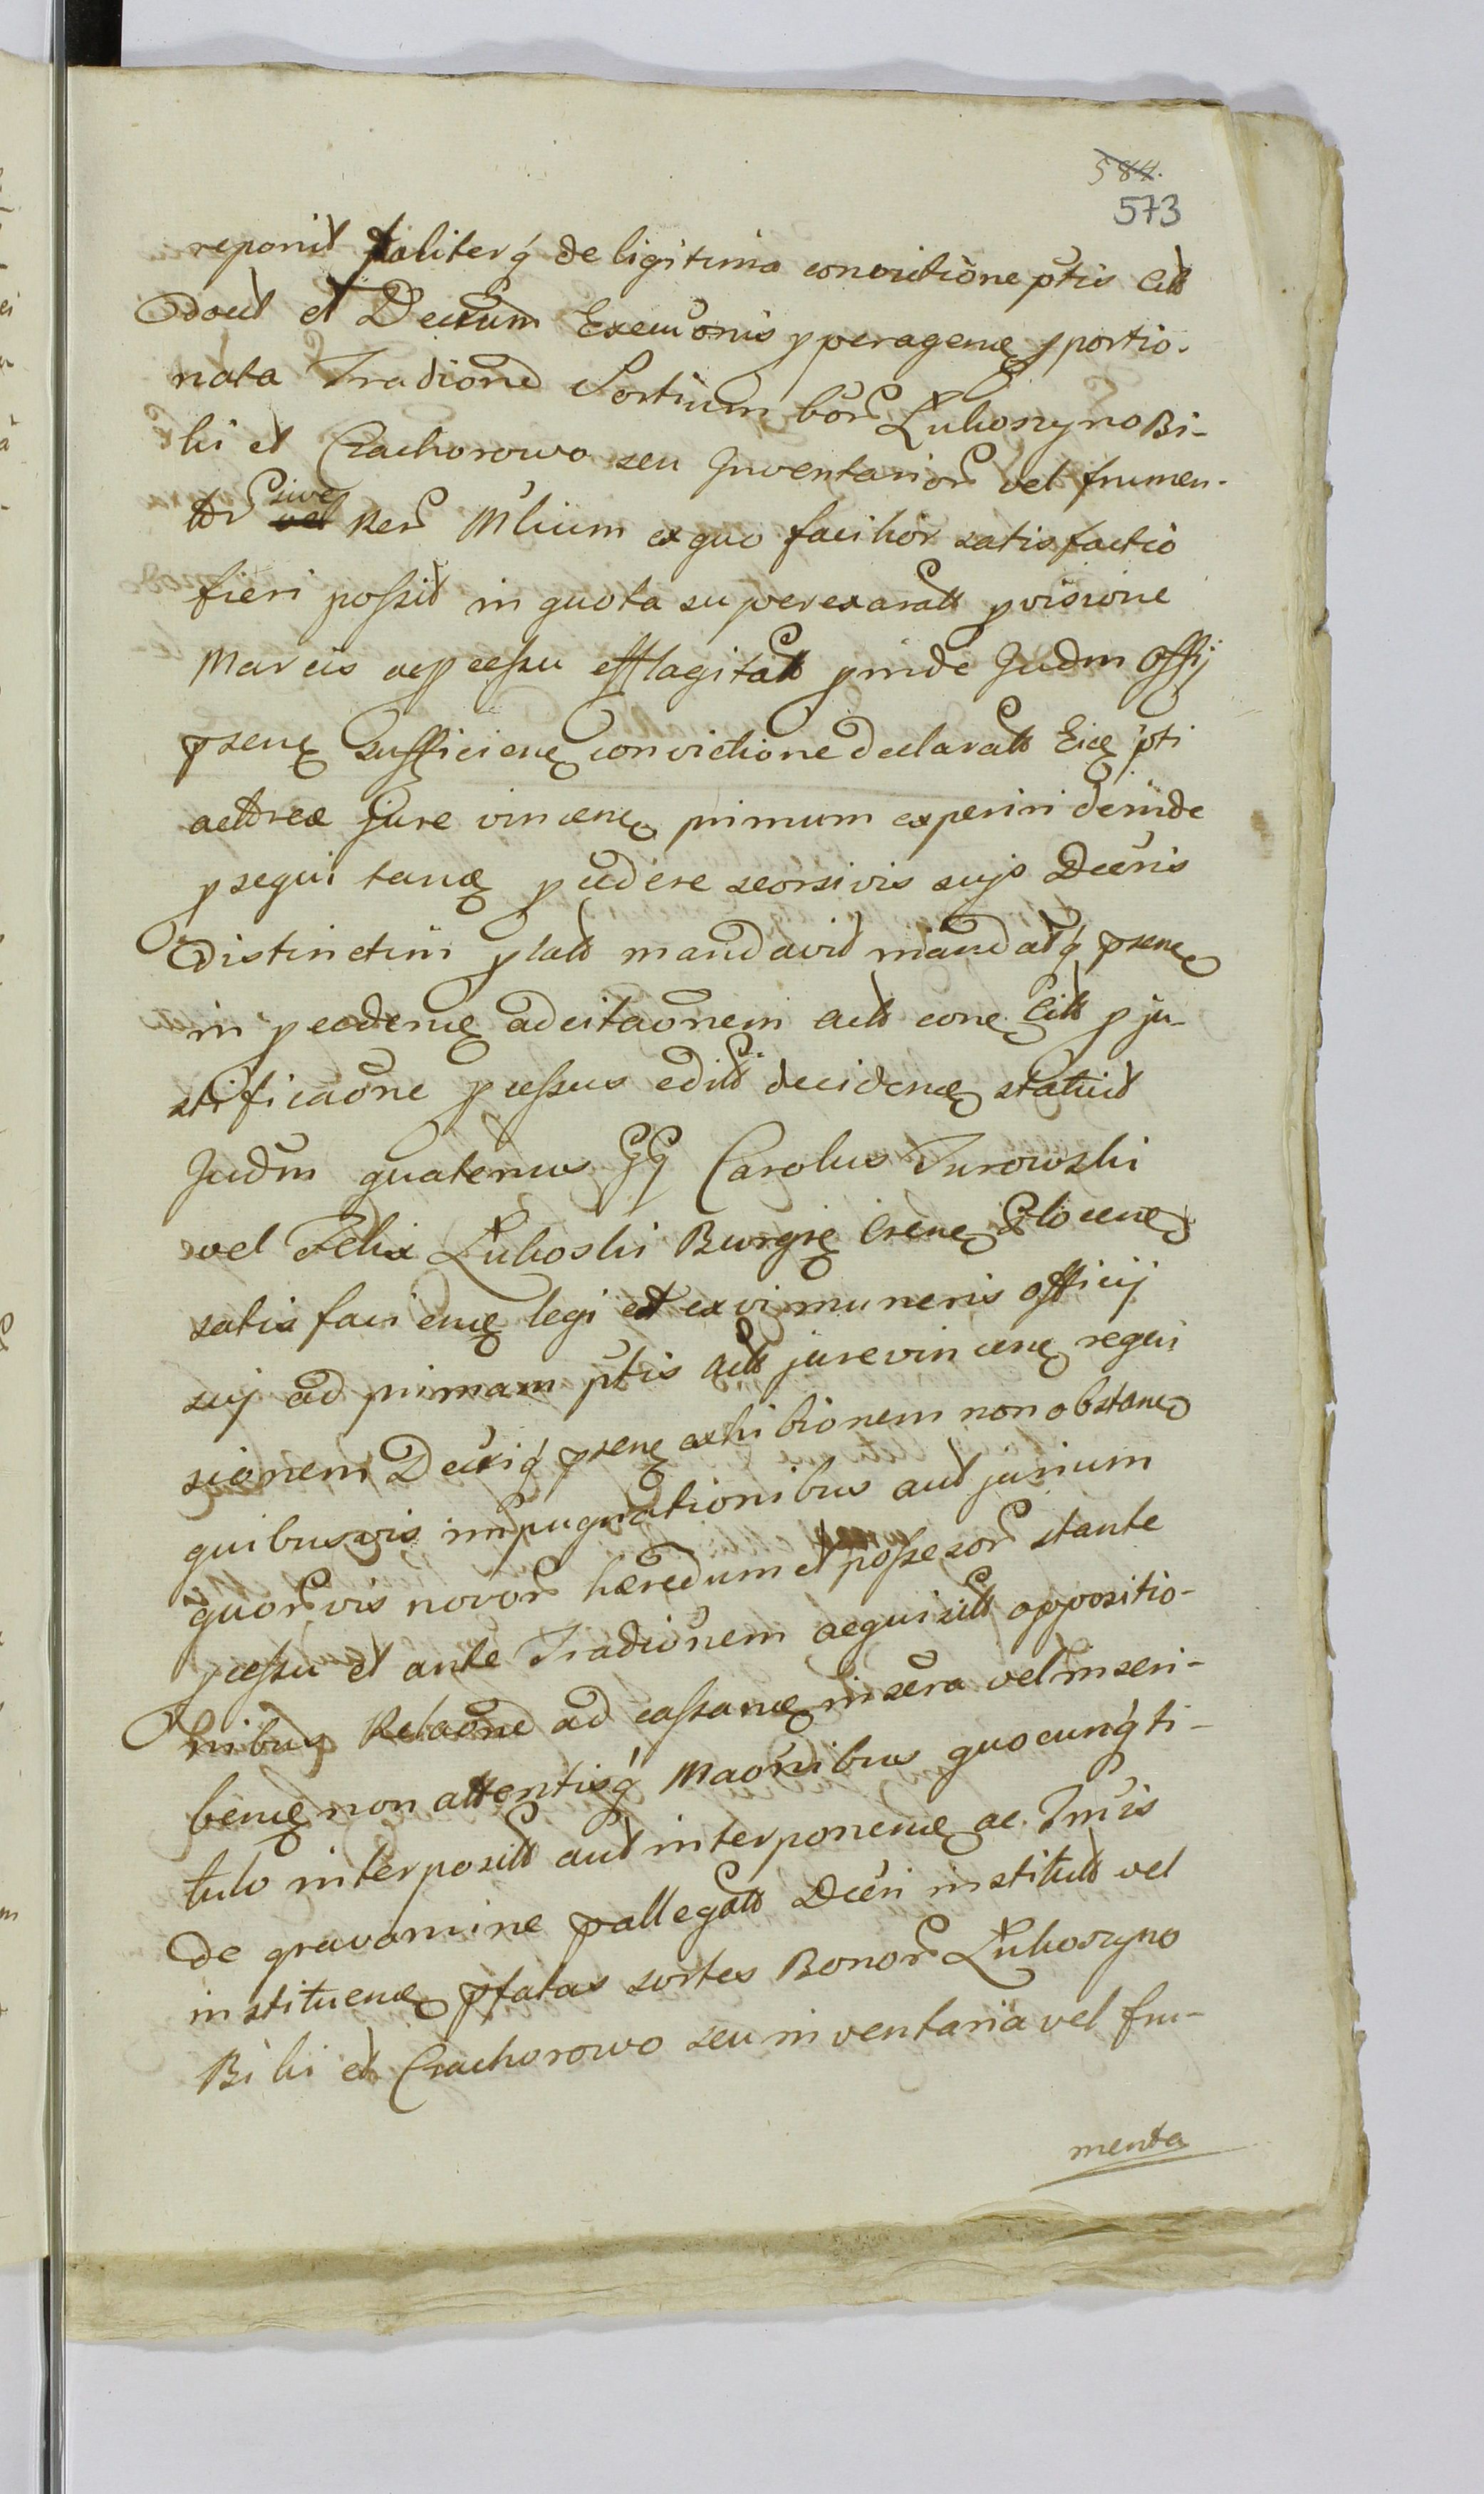 584.
573
reponit taliterq́ de ligitima convictione ptis Citt
Docet et Decŭm Exeŭonis pperagenę pportio-
nata Tradione Sortium bor̃ Łukoszyno Bi-
ki et Czachorowo seu Inventarior̃ vel frumen-
tor̃ sive Rer̃ Mlium ex quo facilior satisfactio
fieri possit in quota superexaratt pvisione
Marcis ac pcessu efflagitatt pinde Judm Offij
psenę sufficienę convictione declaratt Eidę pti
actoreæ jure vincenę primum experiri deinde
psequi tandę pcedere seorsivis sujs Decris
Distinctim platt mandavit mandatq́ psenę
in pcedenę adcitaonem actt conę Citt p ju-
stificaone pcessus editt decidenę statuit
Judm quatenus GG Carolus Turowski
vel Felix Łukoski Burgrę Crenę Plocenę
satis facienę legi et ex vi muneris officij
suj ad primam ptis actt jurevincenę requi
sionem Decriq́ psenę exhibionem non obstanę
quibusvis impugnationibus aut jurium
quor̃vis novor̃ hæredum et possesor̃ stante
pcessu et ante Tradionem acquisitt oppositio-
nibusq Relaone ad cassanę insera vel inseri-
benę non attentisq́ Maonibus quocunq́ ti-
tulo interpositt aut interponenę ac Tmis
de gravamine pallegatt Decri institutt vel
instituenę pfatas sortes Bonor̃ Łukoszyno
Biki et Czachorowo seu inventaria vel fru-
menta